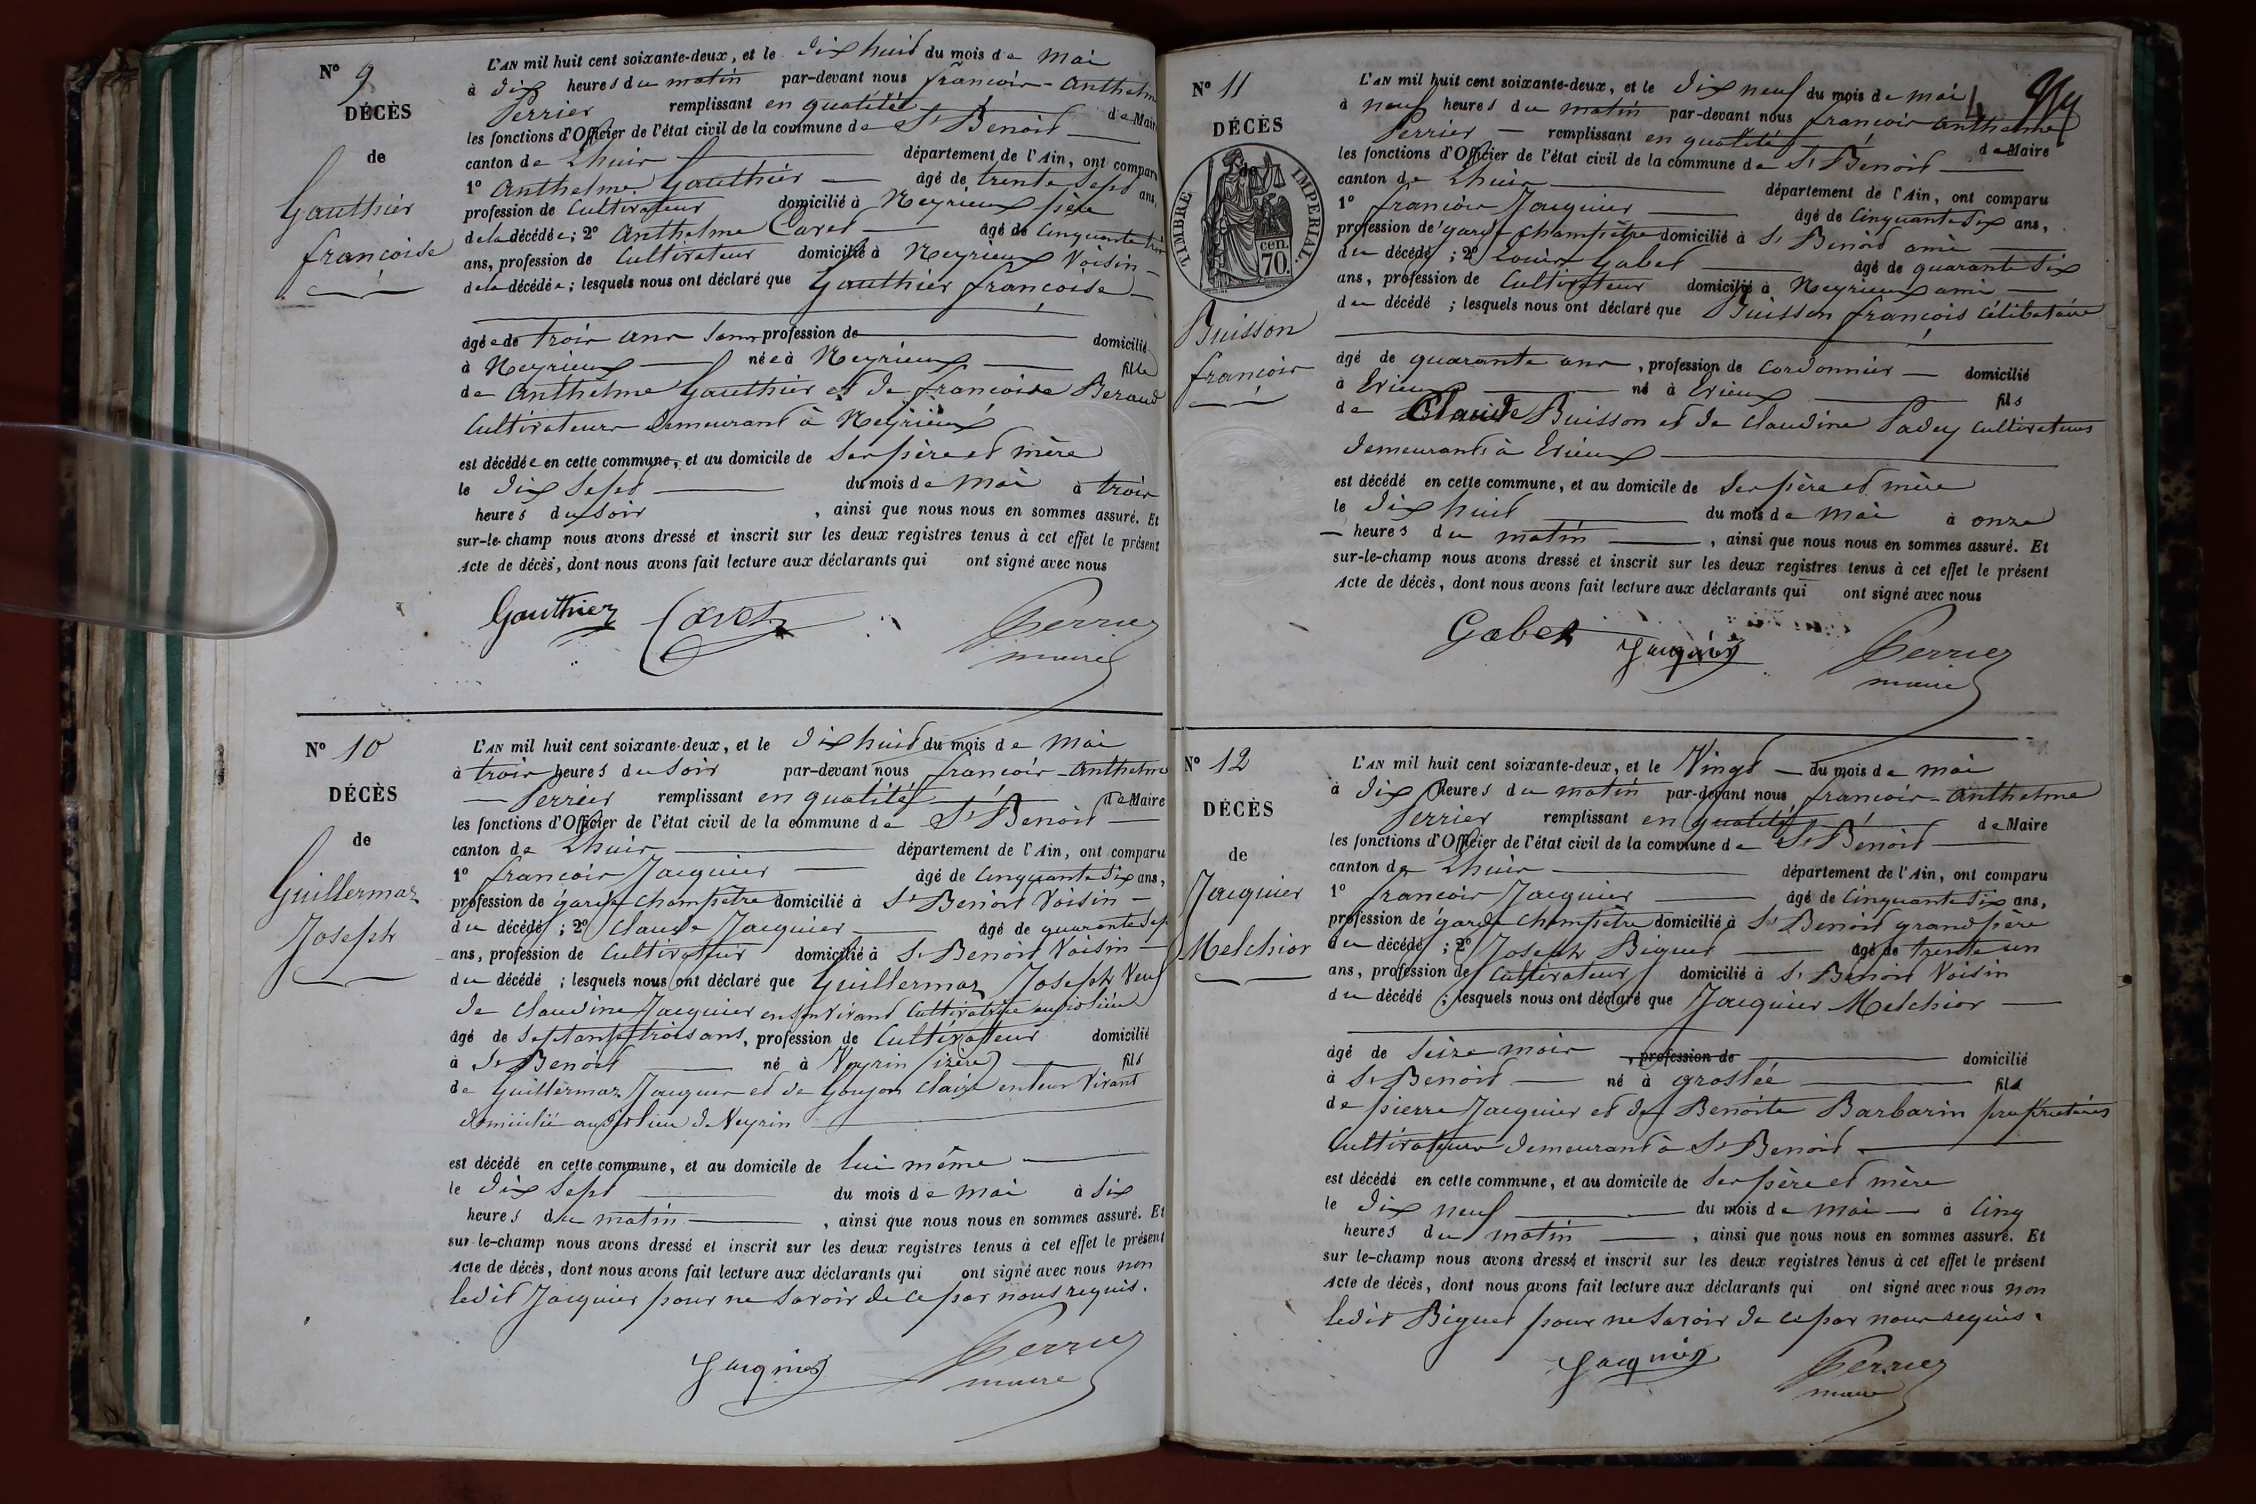 N° 9
DÉCÈS
de
Gauthier
françoise
L'AN mil huit cent soixante-deux, et le dix huit du mois de mai
à dix heures du matin par-devant nous françois-Anthelme
Perrier remplissant en qualité de Maire
les fonctions d'Officier de l'état civil de la commune de St Benoit
canton de Lhuis département de l'Ain, ont comparu
1° Anthelme Gauthier âgé de trente sept ans,
profession de Cultivateur domicilié à Neyrieux père
de la décédée; 2° Anthelme Cavet âgé de cinquante trois
ans, profession de Cultivateur domicilié à Neyrieux Voisin
de la décédée; lesquels nous ont déclaré que Gauthier françoise
âgée de trois ans sans profession de domiciliée
à Neyrieux née à Neyrieux fille
de Anthelme Gauthier et de françoise Beraud
Cultivateurs demeurant à Neyrieux
est décédée en cette commune, et au domicile de ses père et mère
le dix sept du mois de mai à trois
heures du soir, ainsi que nous nous en sommes assuré. Et
sur-le-champ nous avons dressé et inscrit sur les deux registres tenus à cet effet le présent
Acte de décès, dont nous avons fait lecture aux déclarants qui ont signé avec nous
Gauthier Cavet Perrier
maire
N° 10
DÉCÈS
de
Guillermaz
Joseph
L'AN mil huit cent soixante-deux, et le dix huit du mois de mai
à trois heures du soir par-devant nous françois-Anthelme
Perrier remplissant en qualité de Maire
les fonctions d'Officier de l'état civil de la commune de St Benoit
canton de Lhuis département de l'Ain, ont comparu
1° françois Jacquier âgé de cinquante six ans,
profession de garde champêtre domicilié à St Benoit Voisin
du décédé; 2° Claude Jacquier âgé de quarante sept
ans, profession de Cultivateur domicilié à St Benoit Voisin
du décédé; lesquels nous ont déclaré que Guillermaz Joseph Veuf
de Claudine Jacquier en son vivant Cultivatrice audit lieu
âgé de septante trois ans, profession de Cultivateur domicilié
à St Benoit né à Veyrin (isère) fils
de Guillermaz Jacques et de Goujon Claire en leur vivant
domicilié audit lieu de Veyrin
est décédé en cette commune, et au domicile de lui même
le dix sept du mois de mai à six
heures du matin, ainsi que nous nous en sommes assuré. Et
sur-le-champ nous avons dressé et inscrit sur les deux registres tenus à cet effet le présent
Acte de décès, dont nous avons fait lecture aux déclarants qui ont signé avec nous non
ledit Jacquier pour ne savoir de ce par nous requis.
Jacquier Perrier
maire
N° 11
DÉCÈS
de
TIMBRE IMPERIAL.
cen.
70.
Buisson
françois
L'AN mil huit cent soixante-deux, et le dix neuf du mois de mai
à neuf heures du matin par-devant nous françois Anthelme
Perrier remplissant en qualité de Maire
les fonctions d'Officier de l'état civil de la commune de St Benoit
canton de Lhuis département de l'Ain, ont comparu
1° françois Jacquier âgé de cinquante six ans,
profession de garde champêtre domicilié à St Benoit ami
du décédé; 2° Louis Gabet âgé de quarante six
ans, profession de Cultivateur domicilié à Neyrieux ami
du décédé; lesquels nous ont déclaré que Buisson françois célibataire
âgé de quarante ans, profession de Cordonnier domicilié
à Evieux né à Evieux fils
de Claude Buisson et de Claudine Padey cultivateurs
demeurants à Evieux
est décédé en cette commune, et au domicile de ses père et mère
le dix huit du mois de mai à onze
heures du matin, ainsi que nous nous en sommes assuré. Et
sur-le-champ nous avons dressé et inscrit sur les deux registres tenus à cet effet le présent
Acte de décès, dont nous avons fait lecture aux déclarants qui ont signé avec nous
Gabet Jacquier Perrier
maire
N° 12
DÉCÈS
de
Jacquier
Melchior
L'AN mil huit cent soixante-deux, et le Vingt du mois de mai
à dix heures du matin par-devant nous françois-Anthelme
Perrier remplissant en qualité de Maire
les fonctions d'Officier de l'état civil de la commune de St Benoit
canton de Lhuis département de l'Ain, ont comparu
1° françois Jacquier âgé de cinquante six ans,
profession de garde champêtre domicilié à St Benoit grand père
du décédé; 2° Joseph Biguet âgé de trente un
ans, profession de Cultivateur domicilié à St Benoit Voisin
du décédé; lesquels nous ont déclaré que Jacquier Melchior
âgé de seize mois, profession de domicilié
à St Benoit né à groslée fils
de pierre Jacquier et de Benoite Barbarin propriétaires
Cultivateurs demeurant à St Benoit
est décédé en cette commune, et au domicile de ses père et mère
le dix neuf du mois de mai à cinq
heures du matin, ainsi que nous nous en sommes assuré. Et
sur le-champ nous avons dressé et inscrit sur les deux registres tenus à cet effet le présent
Acte de décès, dont nous avons fait lecture aux déclarants qui ont signé avec nous non
ledit Biguet pour ne savoir de ce par nous requis.
Jacquier Perrier
maire